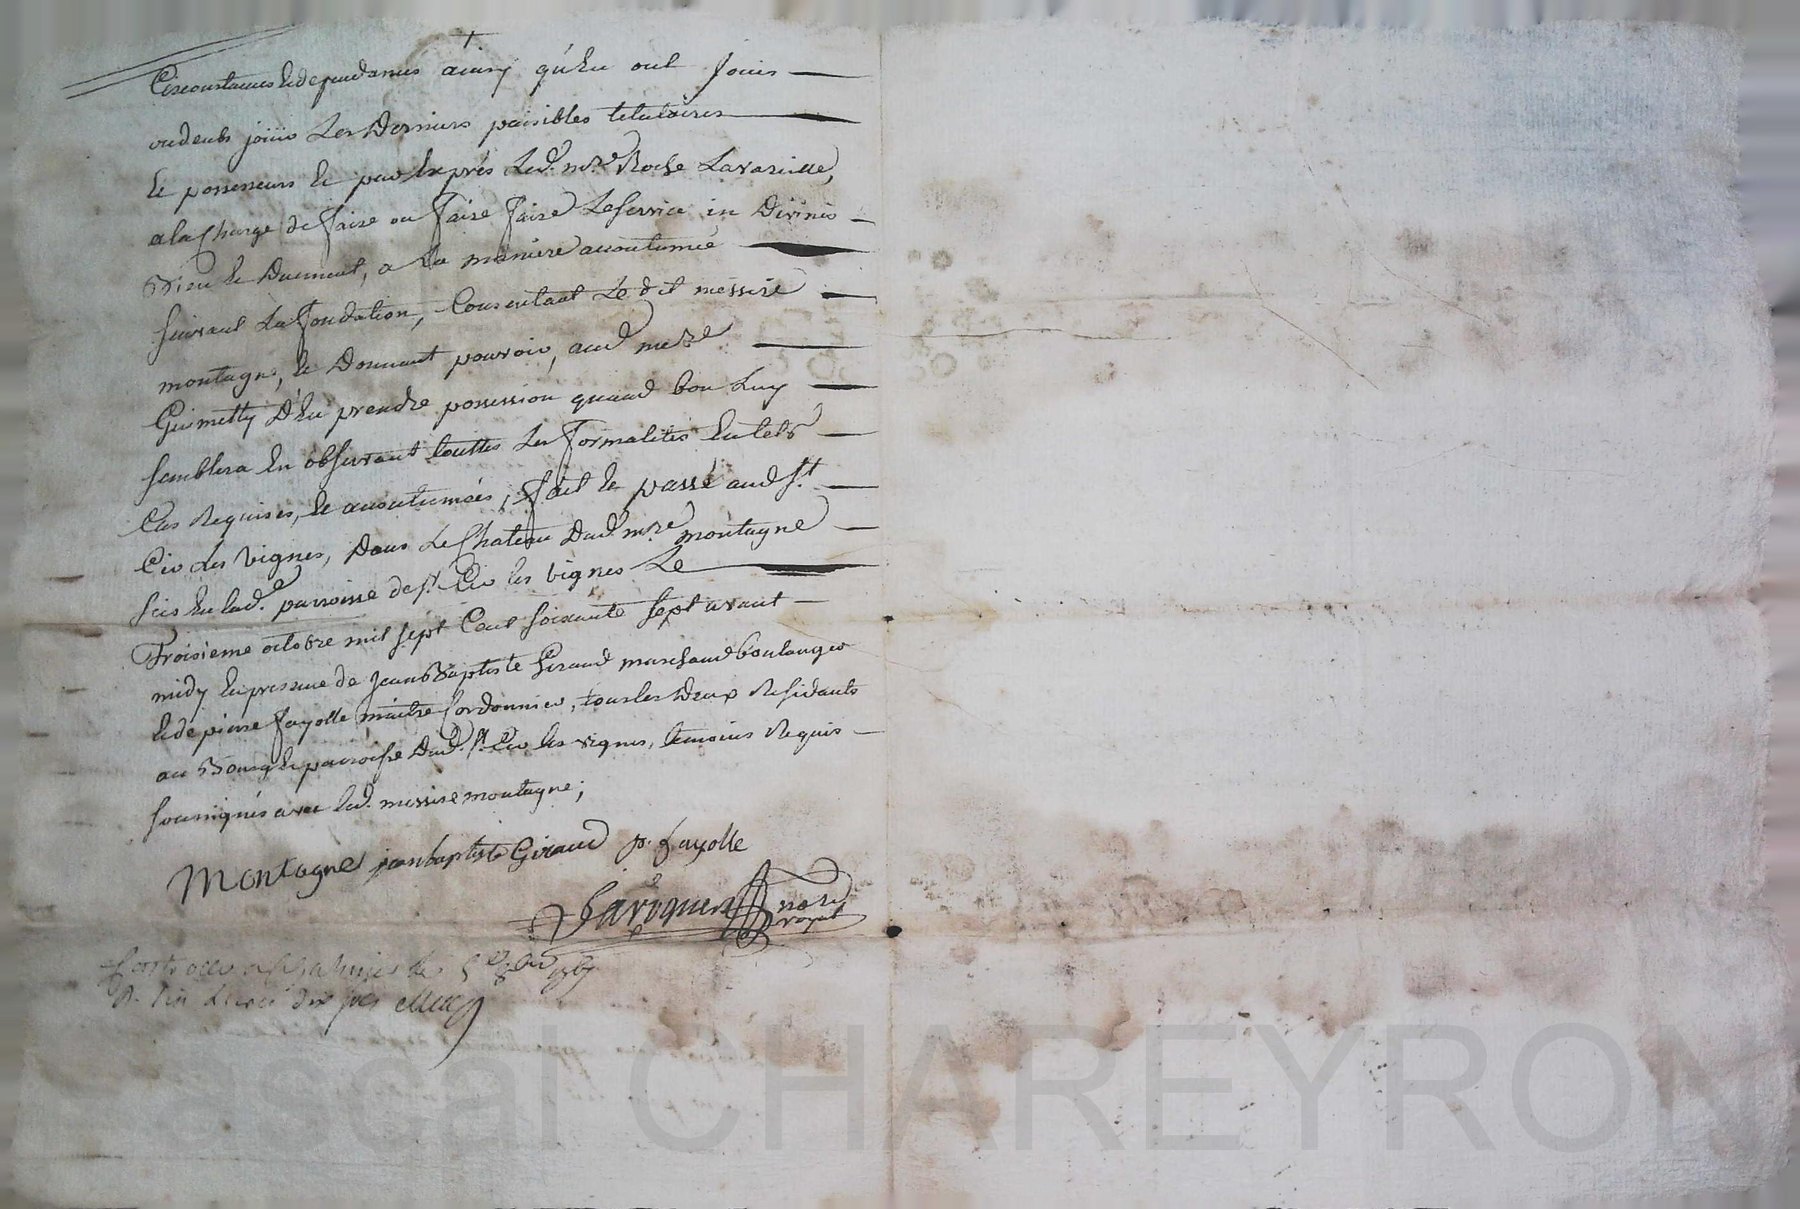 Circonstances et dependances ainsy qu'en ont Jouis
ou deub joüir Les Derniers paisibles titulaires
et possesseurs et par Exprés Led. mre Roche Lavareille,
a la Charge de faire ou faire faire Le service in Divinis
Bien et Duement, a La maniere accoutumée
suivant La fondation, Consentant Le dit messire
montagne, et Donnant pouvoir, aud mesre
Guimetty D'En prendre possession quand bon Luy
semblera En observant touttes Les formalites En tels
Cas Requises, et accoutumées, fait et passé aud St
Cir Les vignes, Dans Le Chateau Dud. mre montagne
scis En lad. parroisse de St Cir les vignes Le
Troisieme octobre mil sept Cent soixante sept avant
midy En presence de Jean Baptiste Giraud marchand boulanger
et de pierre fayolle maitre Cordonnier, tous les Deux Residants
au Bourg et parroisse Dud. St Cir les vignes, temoins Requis
soussignés avec led. messire montagne;
Montagne jean baptiste Giraud p. fayolle
no.re
royal
Les 8bre 1767
R. un Livre dix sols
ascal CHAREYRON